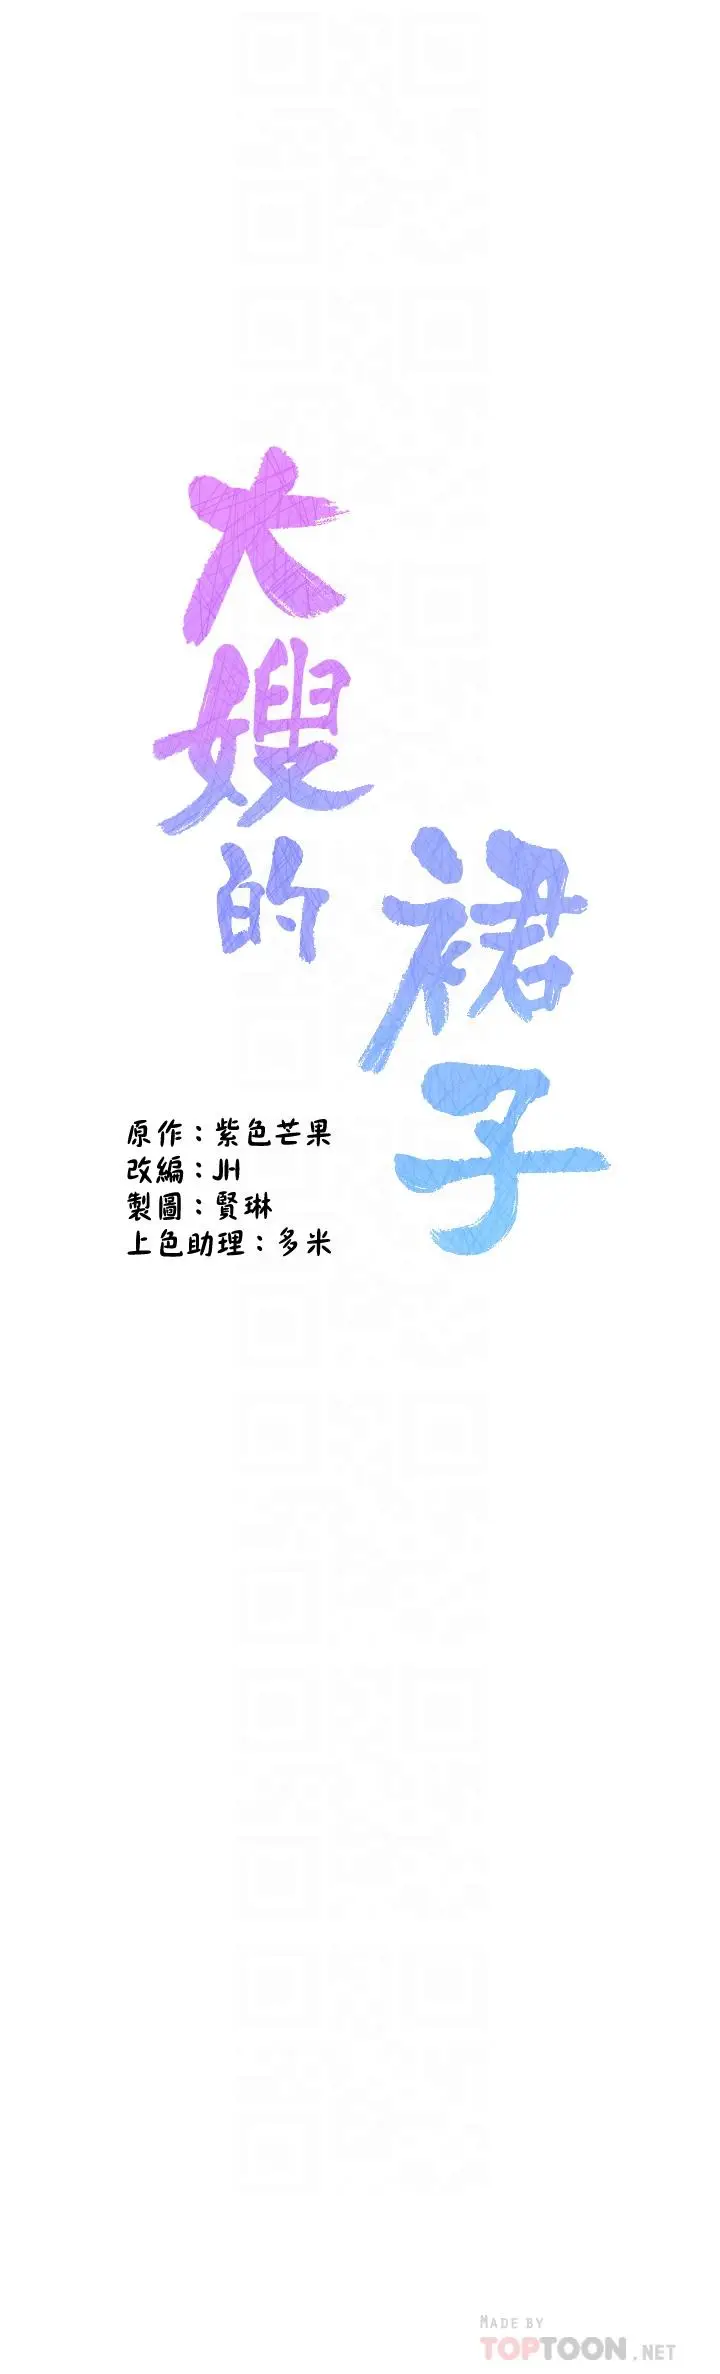 大嫂的
裙子
原作：紫色芒果
改編：JH
製圖：賢琳
上色助理：多米
MADE BY
TOPTOON.NET